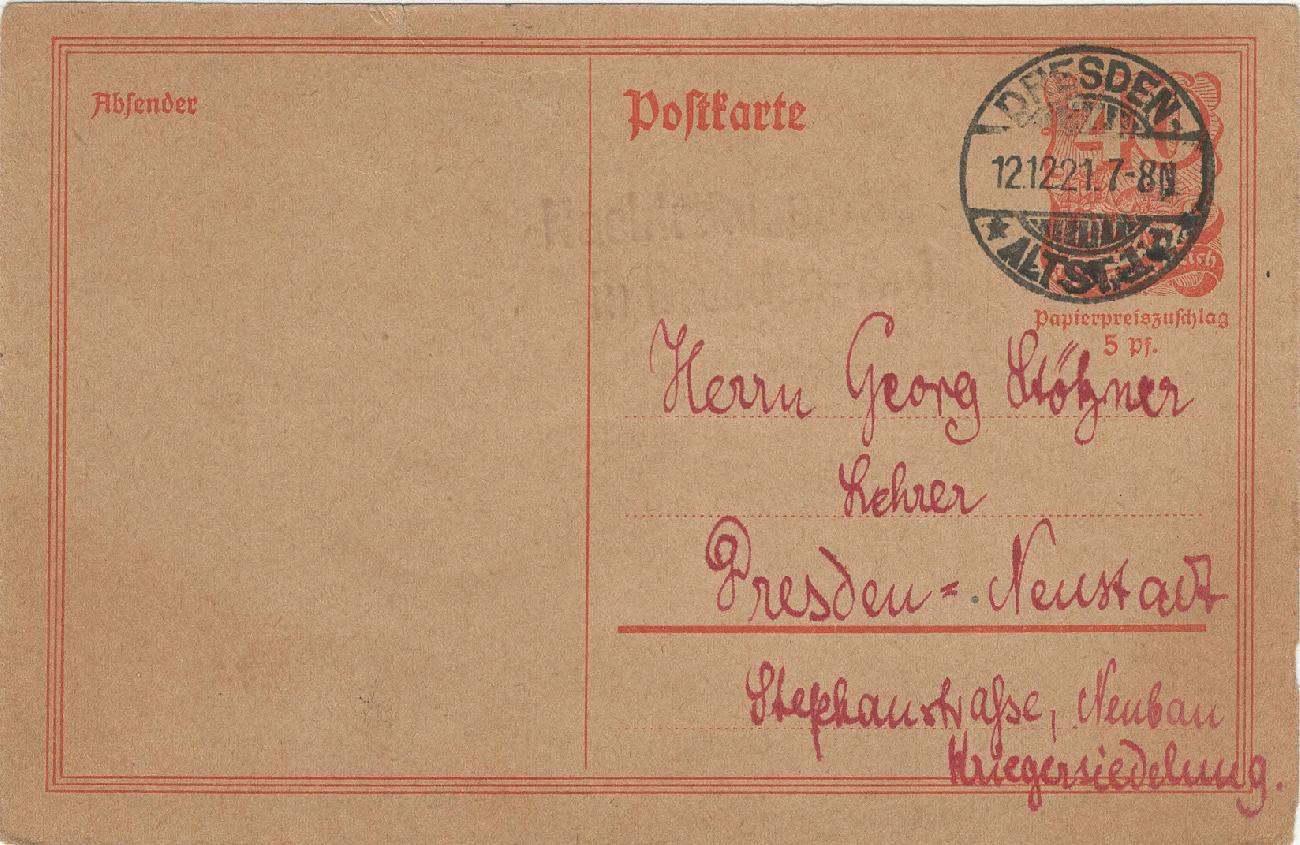 Absender
Postkarte
DRESDEN
40
12.12.21. 7-8N
* ALTST.
Papierpreiszuschlag
5 Pf.
Herrn Georg Stötzner
Lehrer
Dresden = Neustadt
Stephanstraße, Neubau
Kriegersiedelung.